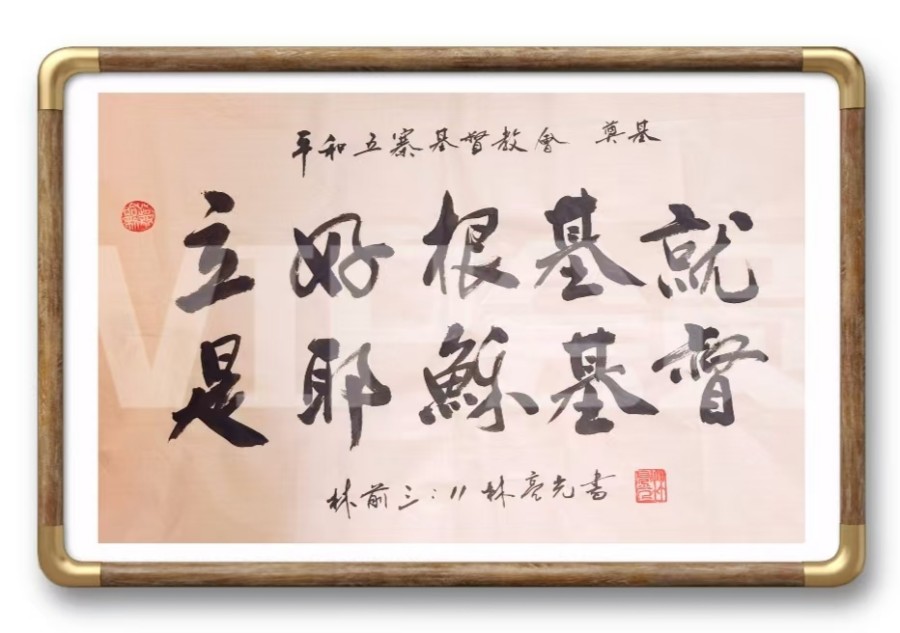 平和五寨基督教會 奠基
立好根基就
是耶穌基督
林前三：11 林亮光書